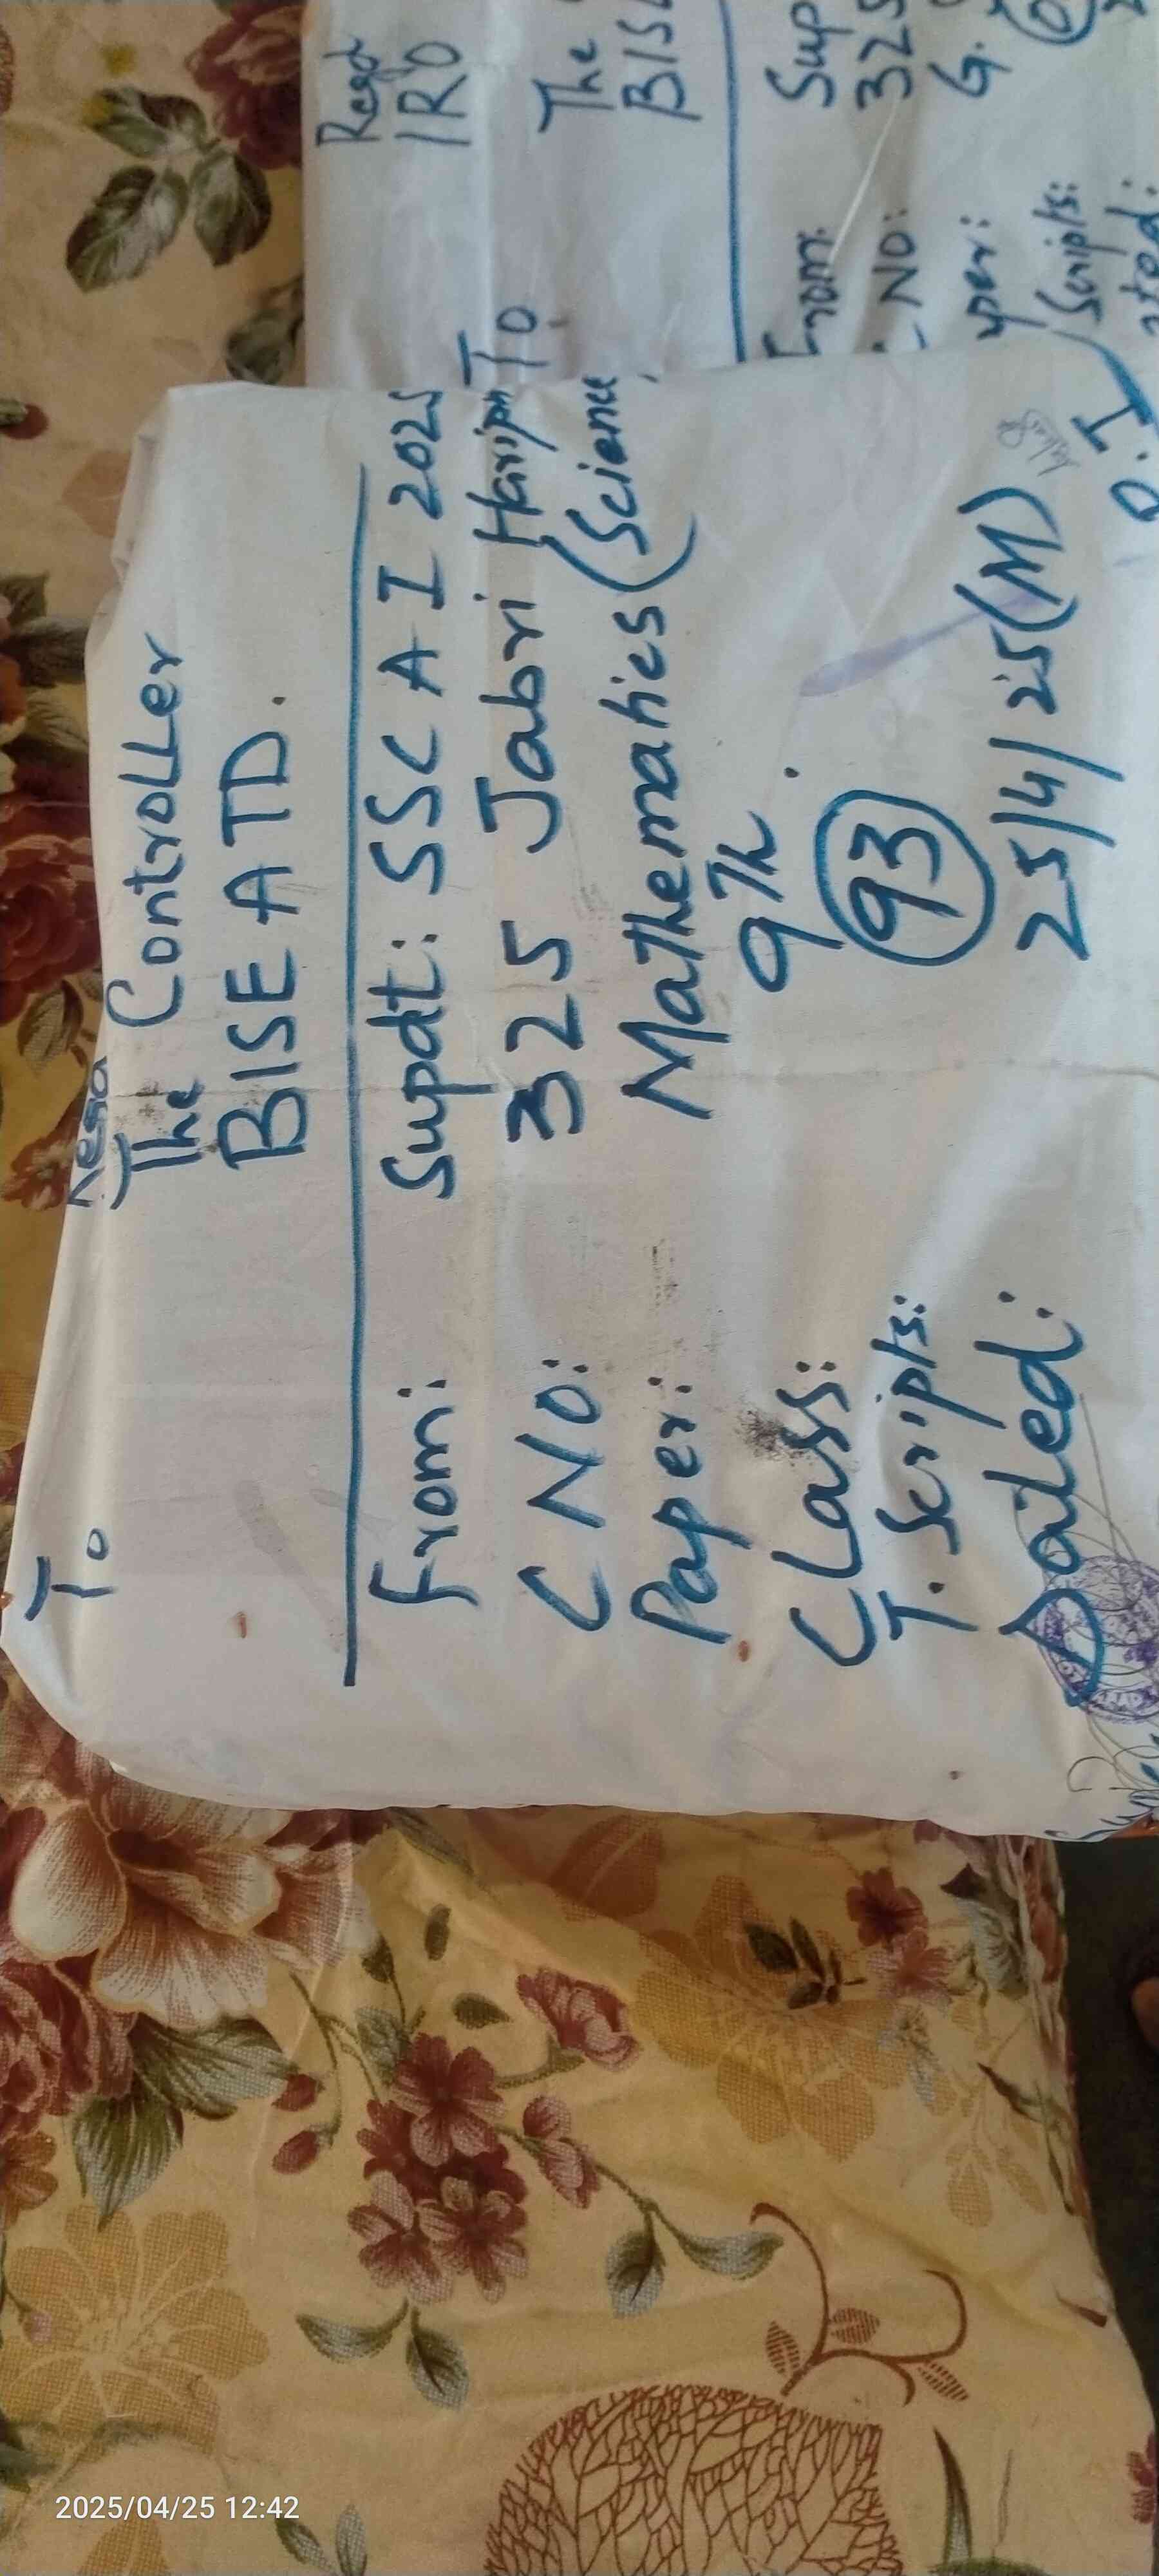 Regd
To
The Controller
BISE ATD.
From: Supdt: SSC A I 2025
C NO: 325 Jabri Haripur
Paper: Mathematics (Science
Class: 9Th.
T. Scripts: 93
Dated: 25/4/25 (M)
O.I
Regd
IRO
To, The
BISE
From: Sup
NO: 325
per: G.
Scripts:
ated:
2025/04/25 12:42